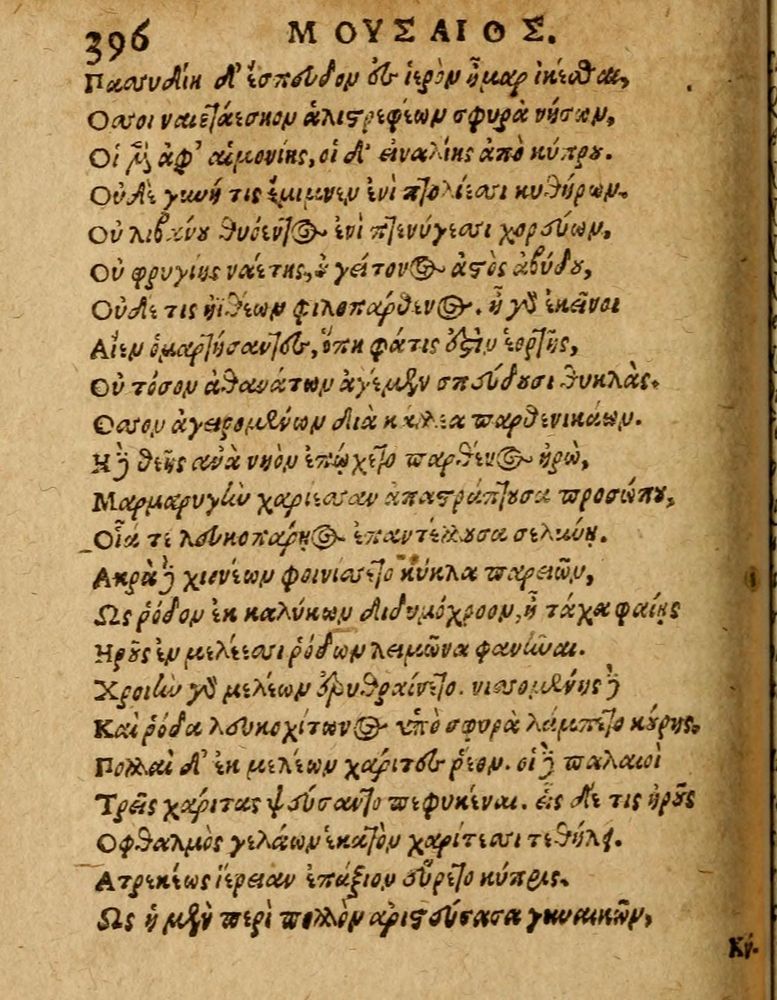 396 ΜΟΥΣΑΙΟΣ.
Πασσυδίῃ δ' ἔσπευδον ἐς ἱερὸν ἦμαρ ἱκέσθαι,
Οσσοι ναιετάεσκον ἁλιστρεφέων σφυρὰ νήσων,
Οἱ μὲν ἀφ' αἱμονίης, οἱ δ' εἰναλίης ἀπὸ κύπρου.
Οὐδὲ γυνή τις ἔμιμνεν ἐνὶ πτολίεσσι κυθήρων.
Οὐ λιβάνου θυόεντος ἐνὶ πτερύγεσσι χορεύων,
Οὐ φρυγίης ναέτης, οὐ γείτονος ἀστὸς ἀβύδου,
Οὐδέ τις ἠϊθέων φιλοπάρθενος. ἦ γὰρ ἐκεῖνοι
Αἰὲν ὁμαρτήσαντες, ὅπη φάτις ἐστὶν ἑορτῆς,
Οὐ τόσον ἀθανάτων ἀγέμεν σπεύδουσι θυηλὰς.
Οσσον ἀγειρομένων διὰ κάλλεα παρθενικάων.
Η δὲ θεῆς ἀνὰ νηὸν ἐπῴχετο παρθένος ἡρὼ,
Μαρμαρυγὴν χαρίεσσαν ἀπαστράπτουσα προσώπου,
Οἷά τε λευκοπάρῃος ἐπαντέλλουσα σελήνη.
Ακρὰ δὲ χιονέων φοινίσσετο κύκλα παρειῶν,
Ως ῥόδον ἐκ καλύκων διδυμόχροον, ἦ τάχα φαίης
Ηροῦς ἐν μελέεσσι ῥόδων λειμῶνα φανῆναι.
Χροιὴν γὰρ μελέων ἐρυθραίνετο. νισσομένης δὲ
Καὶ ῥόδα λευκοχίτωνος ὑπὸ σφυρὰ λάμπετο κούρης.
Πολλαὶ δ' ἐκ μελέων χάριτες ῥέον. οἱ δὲ παλαιοὶ
Τρεῖς χάριτας ψεύσαντο πεφυκέναι. εἷς δέ τις ἡροῦς
Οφθαλμὸς γελάων ἑκατὸν χαρίτεσσι τεθήλει.
Ατρεκέως ἱέρειαν ἐπάξιον εὕρετο κύπρις.
Ως ἡ μὲν περὶ πολλὸν ἀριστεύσασα γυναικῶν,
Κύ-